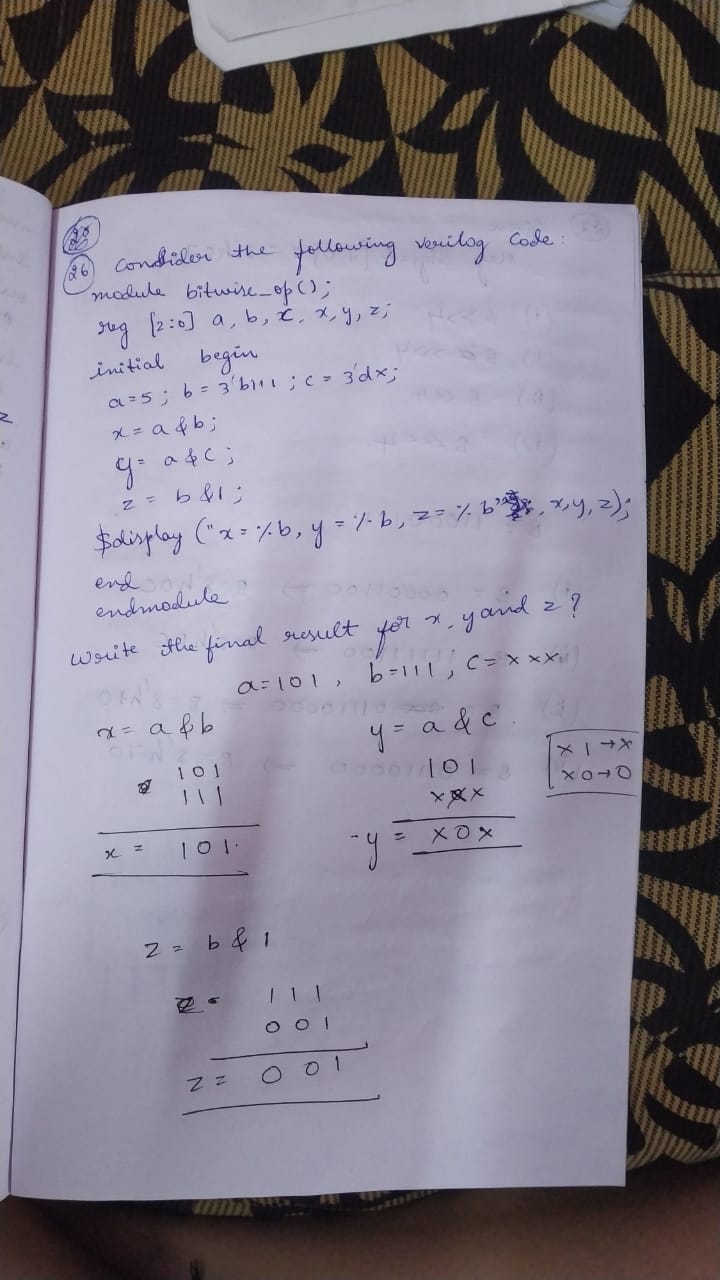 26 Consider the following verilog code:
module bitwise_op();
reg [2:0] a, b, c, x, y, z;
initial begin
a=5; b = 3'b111; c = 3'dx;
x = a & b;
y = a & c;
z = b & 1;
$display ("x = %b, y = %b, z = %b", x, y, z);
end
endmodule
write the final result for x, y and z?
a=101, b=111, c=xxx
x = a & b
101
111
x = 101.
y = a & c.
101
xxx
y = x0x
x 1 → x
x 0 → 0
z = b & 1
111
001
z = 001